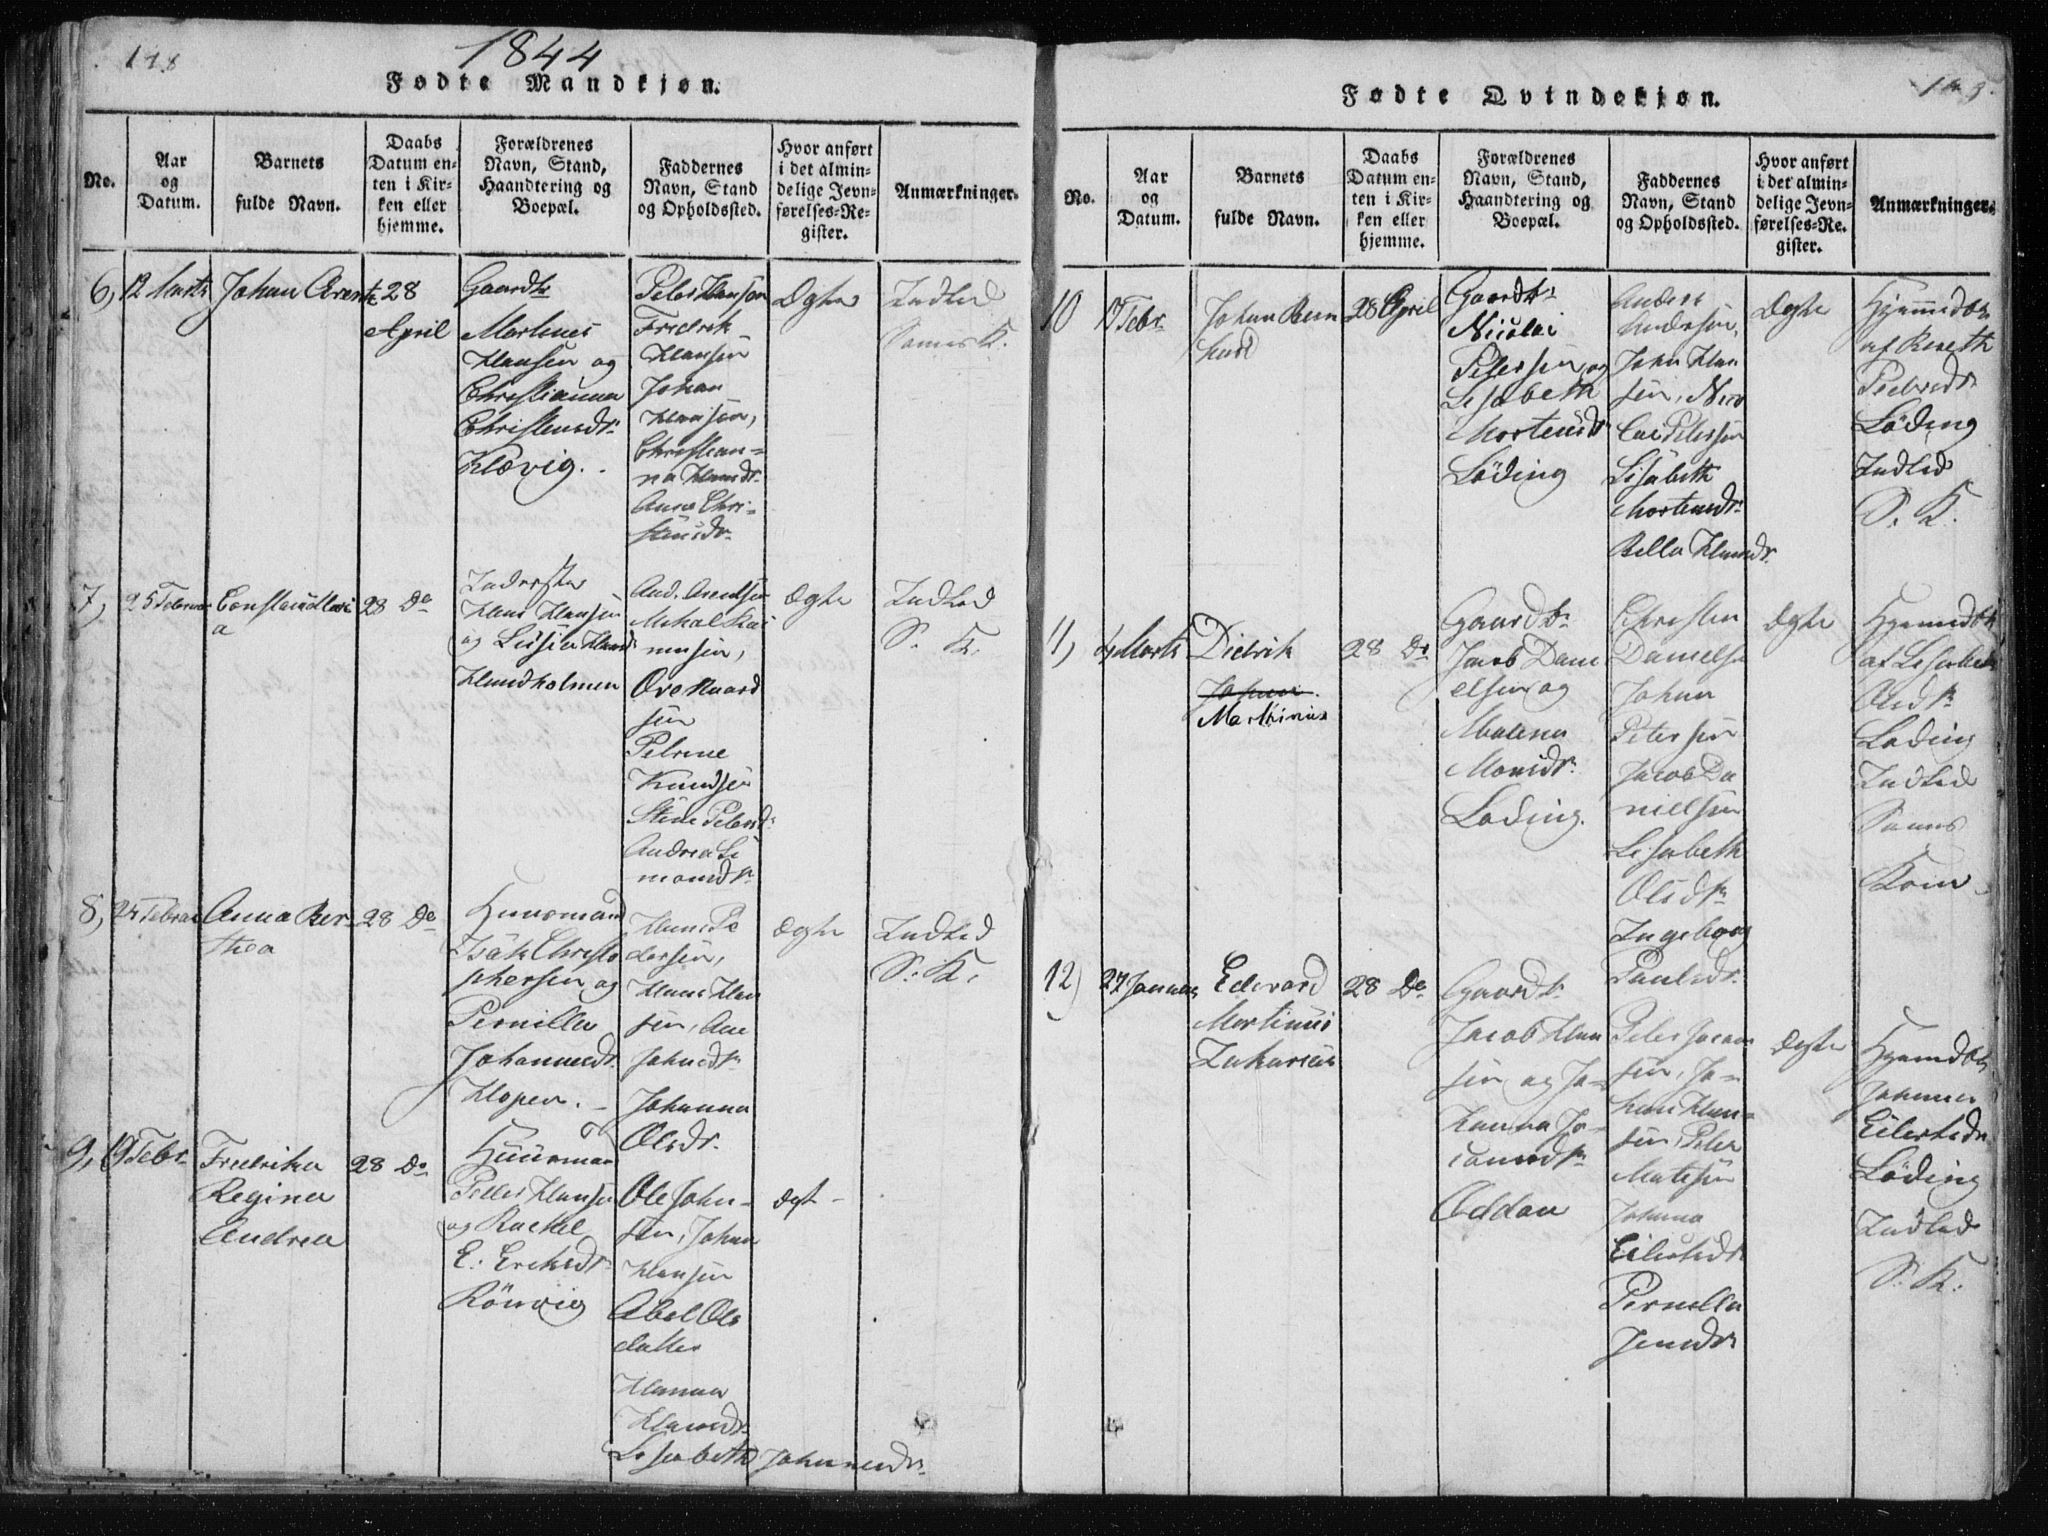 1844
Fødte Mandkjøn.
No.
Aar
og
Datum.
Barnets
fulde Navn.
Daabs
Datum en-
ten i Kir-
ken eller
hjemme.
Forældrenes
Navn, Stand,
Haandtering og
Boepæl.
Faddernes
Navn, Stand
og Opholdssted.
Hvor anført
i det almin-
delige Jevn-
førelses-Re-
gister.
Anmærkninger.
6,
12 Marts
Johan Arentz
28
April
Gaardbr
Martines
Hansen og
Christianna
Christensdr.
Klævig.
Peter Hansen
Fredrik
Hansen
Johan
Hansen,
Christian-
na Hansdr.
Anna Chri-
stensdr.
Ægte
Indled
Samme K.
7,
25 Februar
28 Do
Inderster
Hans Hansen
og
Hundholmen
And. Arentsen
Mikal
Ove
sen
Petrine
Knudsen
Stine Petersdr.
Andrea Si
monsdr.
Ægte
Indled
S. K.
8,
24 Februar
Anna Ber-
thea
28 Do
Huusmand
Isak Christo
phersen og
Pernilla
Johannesdr.
Klopen.
Hans Pe
dersen,
Hans Han
sen, Ane
Johnsdr.
Johanna
Olsdr.
Ægte
Indled
S. K.
9,
19 Febr.
Fredrikka
Regina
Andrea
28 Do
Huusman
Peter Hansen
og Rachel
E. Ericksdr.
Rönvig
Ole John-
sen, Johan
Hansen
Abel Ols
datter
Hanna
Hansdr.
Lisabeth Johannesdr.
Ægt
Fødte Qvindekjøn.
No.
Aar
og
Datum.
Barnets
fulde Navn.
Daabs
Datum en-
ten i Kir-
ken eller
hjemme.
Forældrenes
Navn, Stand,
Haandtering og
Boepæl.
Faddernes
Navn, Stand
og Opholdssted.
Hvor anført
i det almin-
delige Jevn-
førelses-Re-
gister.
Anmærkninger.
10
17 Febr.
Johan Bern
hard
28 April
Gaardbr.
Nicolai
Petersen og
Lisabeth
Mortensdr.
Löding
Anders
Andersen,
John Han
sen, Nico
lai Petersen
Lisabeth
Mortensdr.
Bella Hansdr.
Ægte
Hjemmedøbt
af
Pedersdr.
Löding
Indled
S. K.
11,
4 Marts
Didrik
Johan
Martinius
28 Do
Gaardbr.
Jacob Dani
elsen og
Malena
Monsdr.
Löding.
Christen
Danielsen
Johan
Petersen
Jacob Da
nielsen
Lisabeth
Olsdr.
Ingeborg
Paulsdr.
Ægte
Hjemmedøbt
af Lisabeth
Olsdr.
Löding
Indled
Samme
Kone
12)
27 Januar
Edevard
Martinus
Zakarias
28 Do
Gaardbr.
Jacob Han
sen og Jo-
hanna Jo-
Oddan
Peter
sen, Jo-
han Han-
sen, Peter
Matisen
Johana
Eilertsdr.
Pernella
Jensdr.
Ægte
Hjemmedøbt
Johanna
Eilertsdr.
Löding
Indled
S. K.